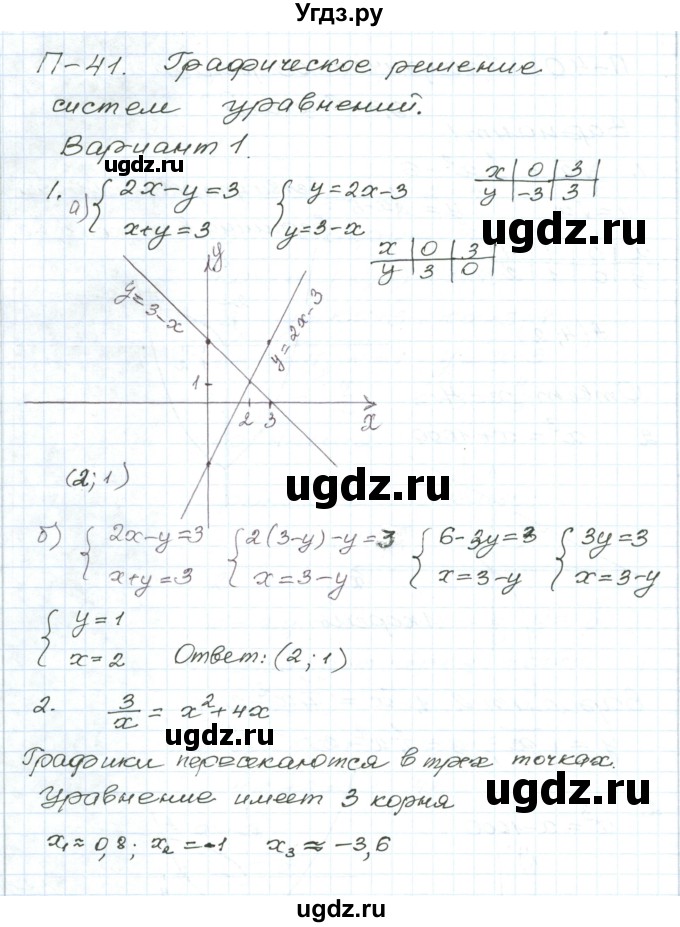 Угдз.ру
П-41. Графическое решение
систем уравнений.
Вариант 1.
ugdz.ru
1. а) { 2x-y=3 { y=2x-3
x+y=3 y=3-x
x | 0 | 3
y | -3 | 3
ugdz.ru
x | 0 | 3
y | 3 | 0
y
y=3-x
y=2x-3
1
2 3
x
(2;1)
ugdz.ru
б) { 2x-y=3 { 2(3-y)-y=3 { 6-3y=3 { 3y=3
x+y=3 x=3-y x=3-y x=3-y
{ y=1
x=2 Ответ: (2;1)
ugdz.ru
2. 3/x = x²+4x
ugdz.ru
Графики пересекаются в трех точках.
Уравнение имеет 3 корня
ugdz.ru
x₁≈0,8; x₂=-1 x₃≈-3,6
ugdz.ru